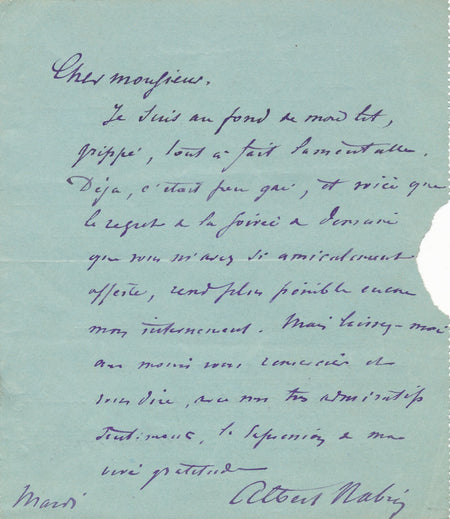 Cher monsieur.
Je suis au fond de mon lit,
grippé, tout à fait lamentable.
Déjà, c'était peu gai, et voici que
le regret de la soirée de demain
que vous m'avez si amicalement
offerte, rend plus pénible encore
mon internement. Mais laissez-moi
au moins vous remercier et
vous dire, avec mes très admiratifs
sentiments, l'expression de ma
vive gratitude
Mardi Albert